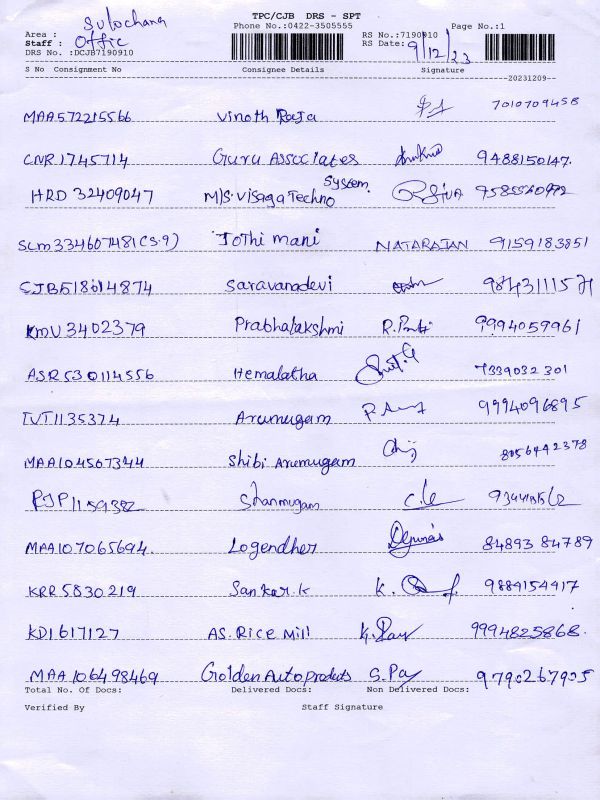 TPC/CJB DRS - SPT
Sulochana
Area : Phone No.:0422-3505555 Page No.:1
Staff : Offic RS No.:7190910
DRS No. :DCJB7190910 RS Date: 9/12/23
S No Consignment No Consignee Details Signature
20231209
MAA572215566 Vinoth Raja 7010709458
CNR1745714 Guru Associates 9488150147.
HRD 32409047 M/S. Visaga Techno System
SLM334607481(S-9) Jothi mani NATARAJAN 9159183851
CJB518614874 Saravanadevi
KMU3402379 Prabhalakshmi 9994059961
ASR530114556 Hemalatha 7339032301
TVT1135374 Arumugam 9994096895
MAA104507344 Shibi Arumugam 8056442378
PJP1159382 Shanmugam
MAA107065694. Logendher 84893 84789
KRR5830219 Sankar.k 9889154917
KDI617127 AS. Rice Mill 9994825868.
MAA106498469 Golden Autoproduts 9790267905
Total No. Of Docs: Delivered Docs: Non Delivered Docs:
Verified By Staff Signature